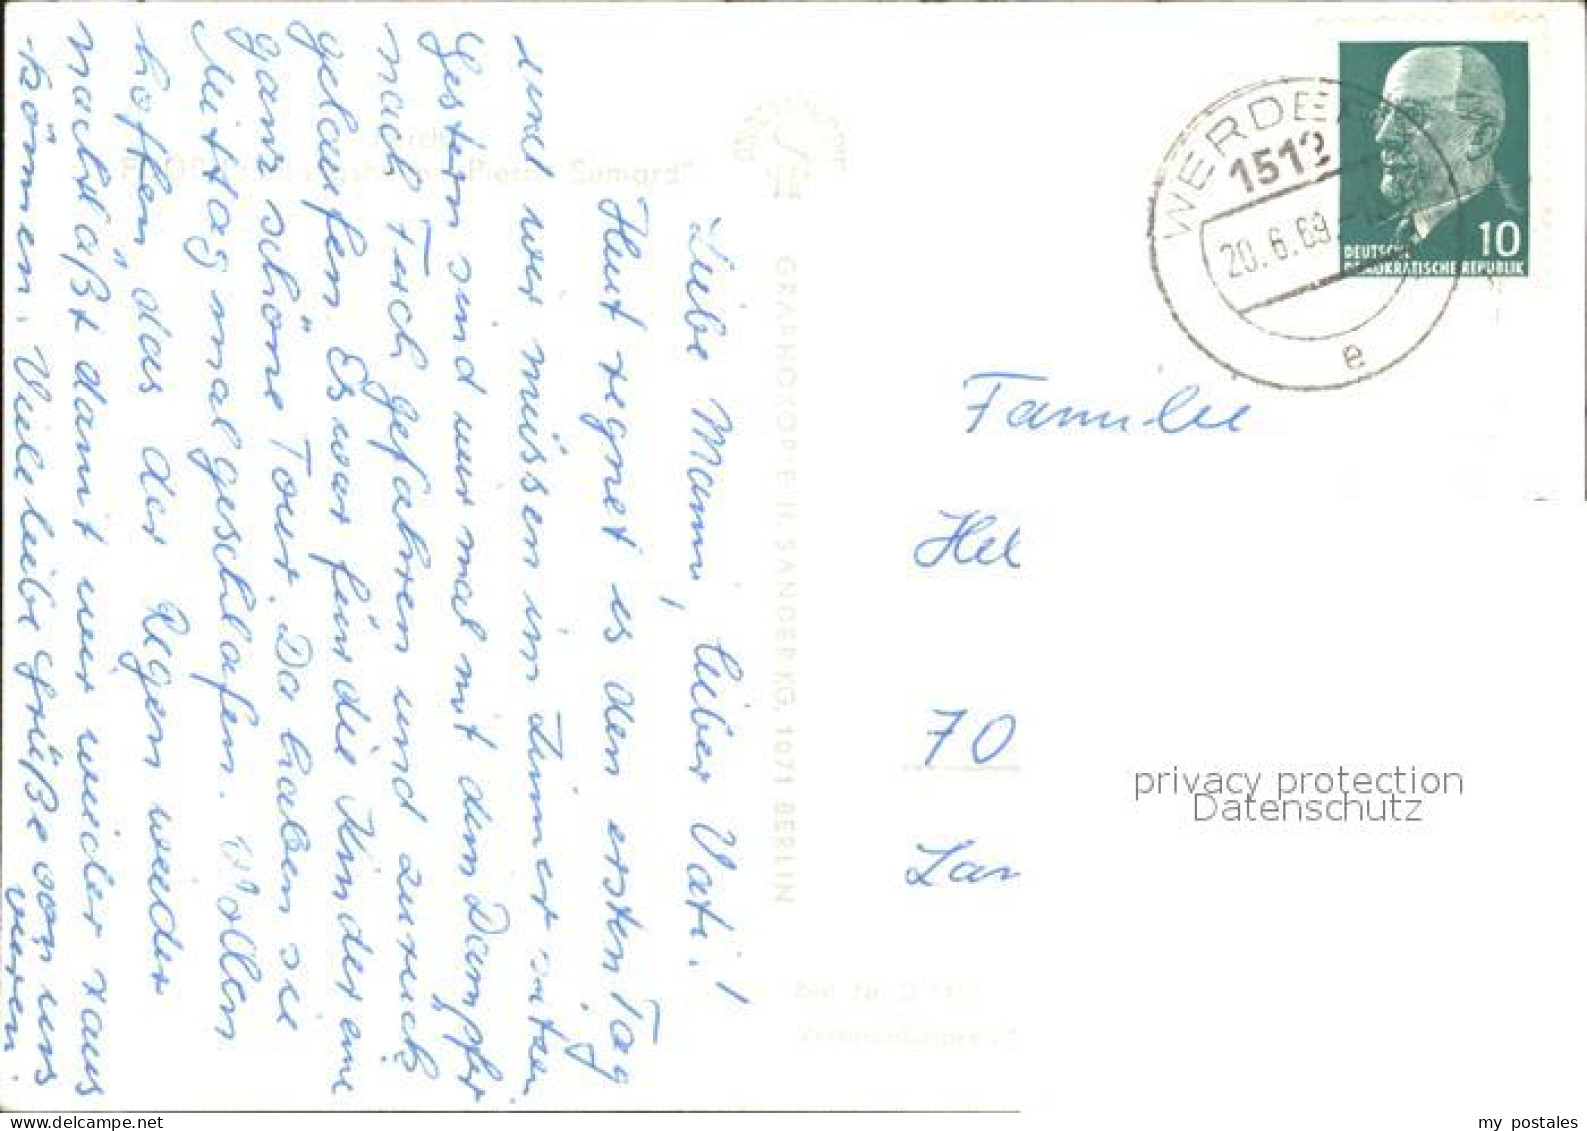 Liebe Mami, lieber Vati!
Heut regnet es den ersten Tag
und wir müssen im Zimmer sitzen.
Gestern sind wir mal mit dem Dampfer
nach Ferch gefahren und zurück
gelaufen. Es war für die Kinder eine
ganz schöne Tour. Da haben sie
Mittag mal geschlafen. Wollen
hoffen, das der Regen wieder
nachläßt damit wir wieder raus
können. Viele liebe Grüße von uns
vieren.
GRAPHOKOPIE H. SANDER KG, 1071 BERLIN
WERDER
1512
20.6.69
e
10
DEUTSCHE
DEMOKRATISCHE REPUBLIK
Familie
Hel
70
Lan
privacy protection
Datenschutz
my postales